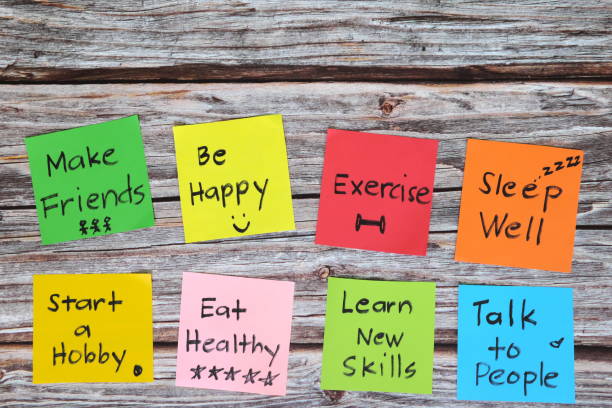 Make
Friends
Be
Happy
Exercise
zzzz
Sleep
Well
Start
a
Hobby
Eat
Healthy
Learn
New
Skills
Talk
to
People